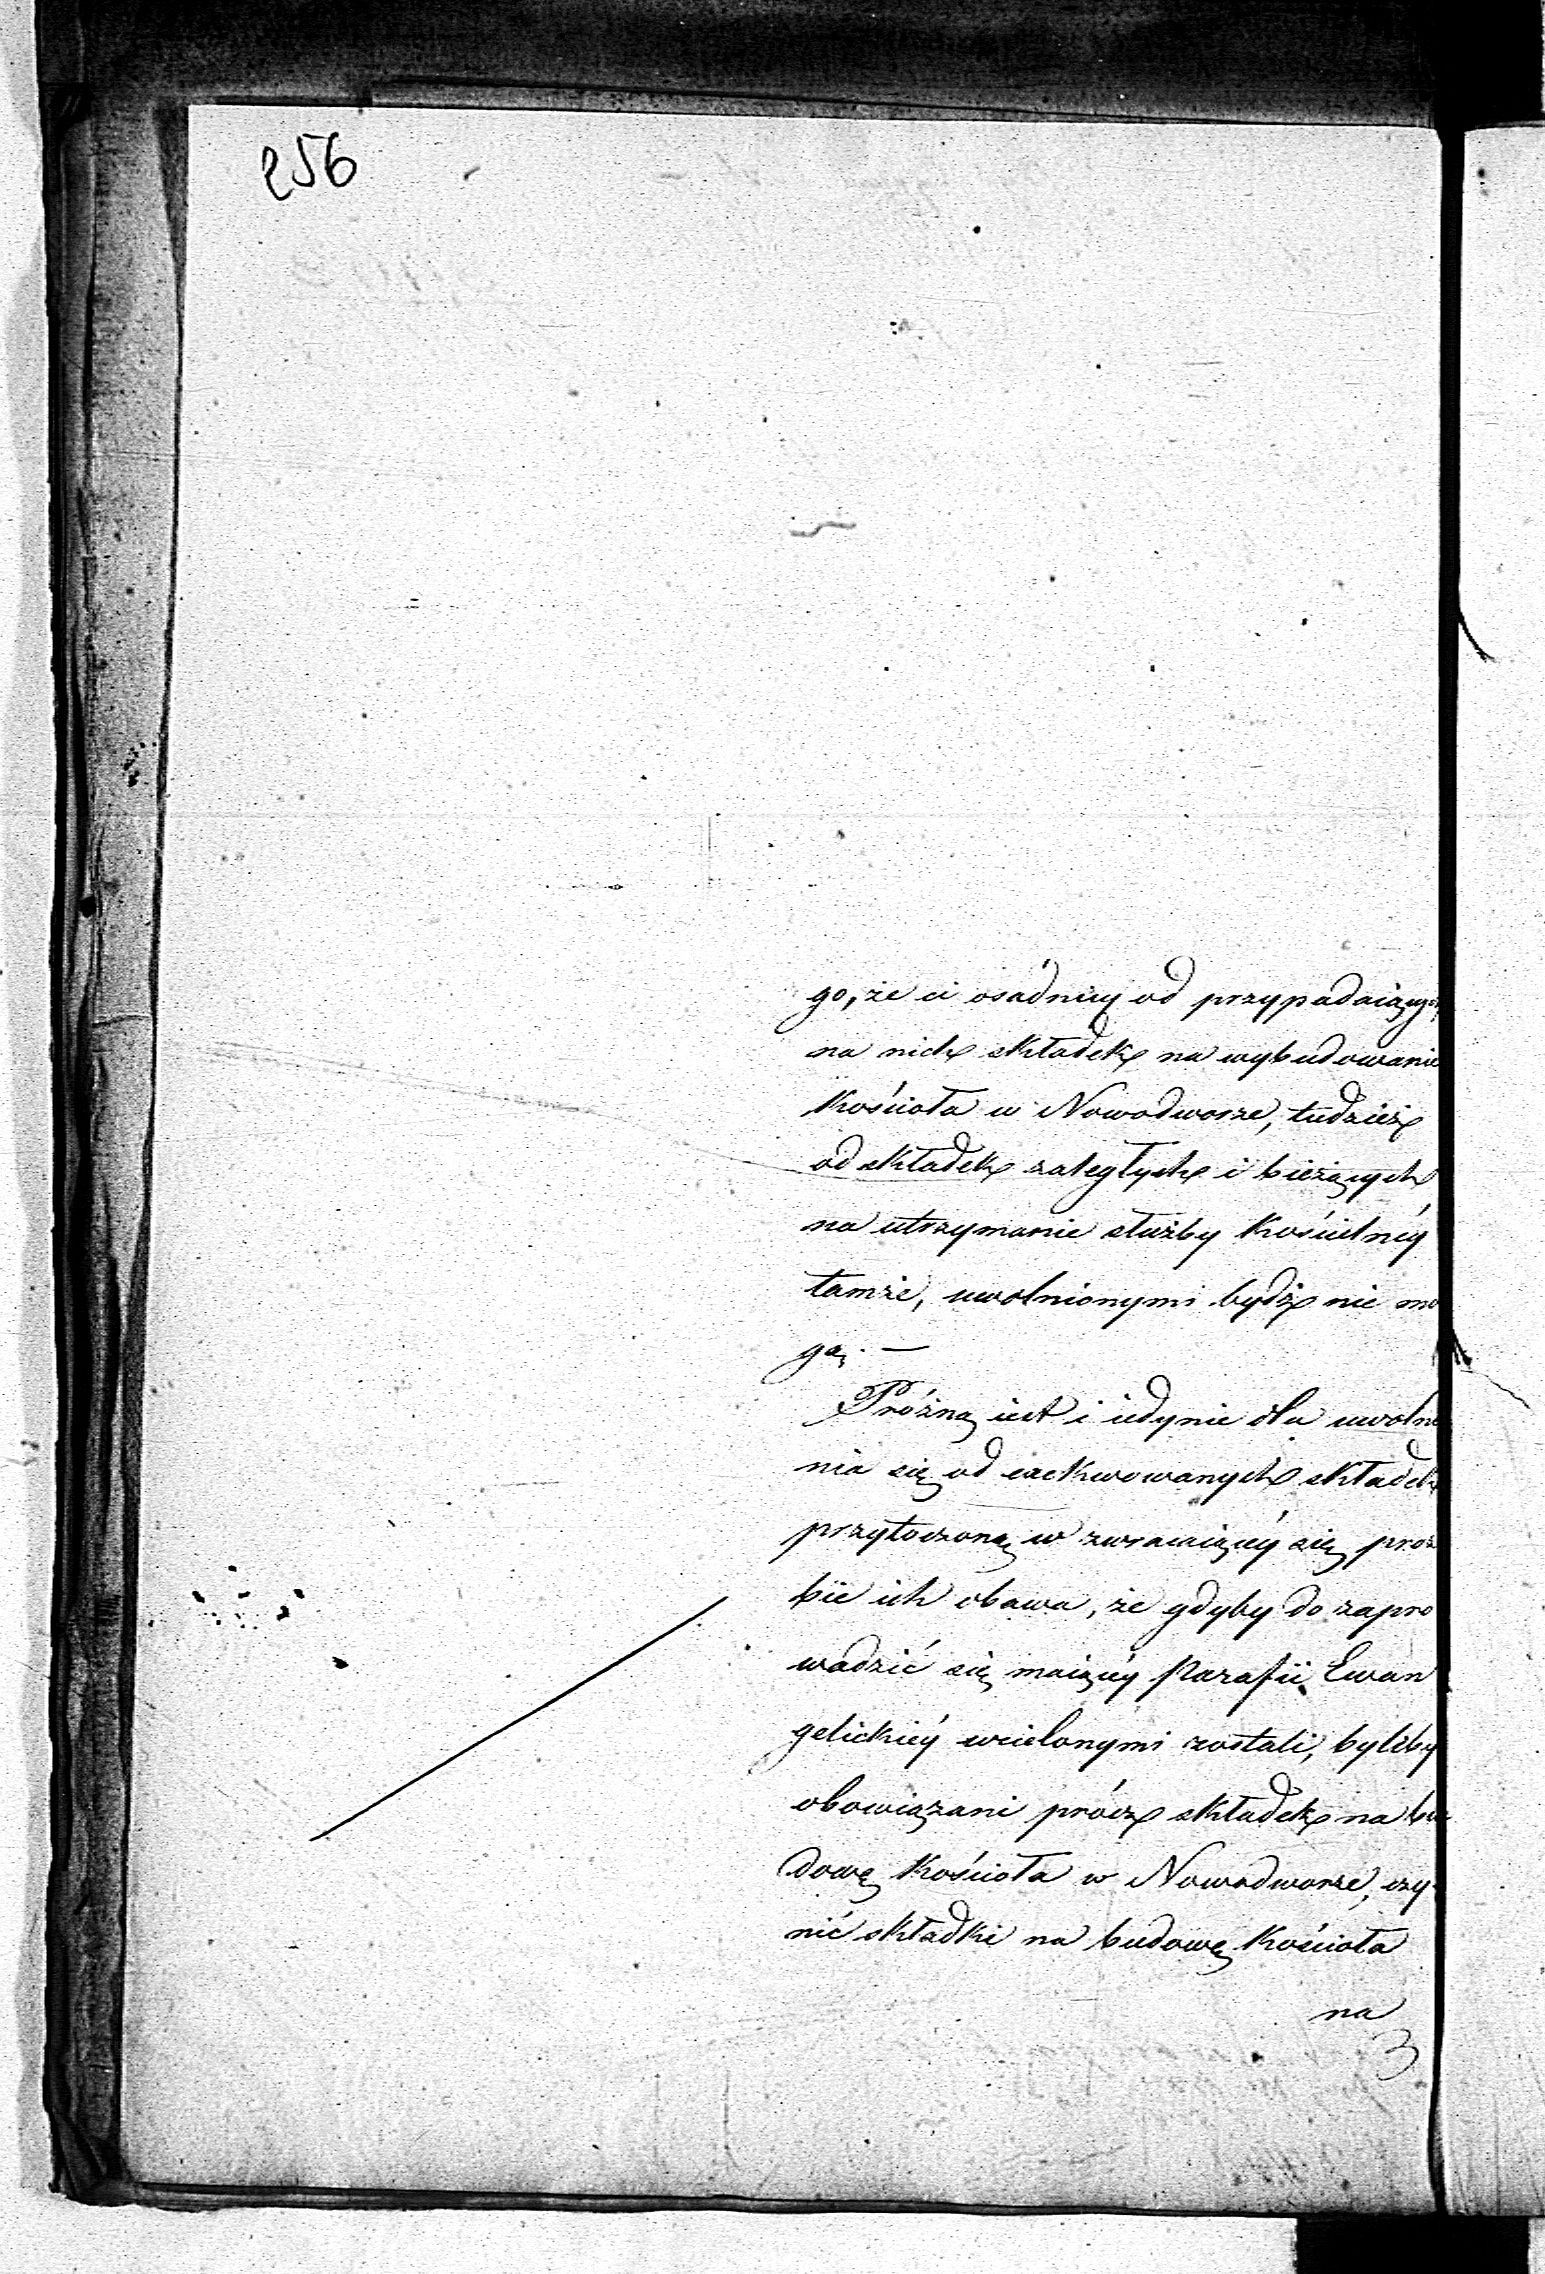 256
go, że ci osadnicy od przypadaiących
na nich składek na wybudowanie
Kościoła w Nowodworze, tudzież
od składek zaległych i bieżących
na utrzymanie służby Kościelnéy
tamże, uwolnionymi bydź nie mo
gą. —
Próżną iest i iedynie dla uwolnie
nia się od exekwowanych składek
przytoczoną w zwracaiącéy się proź
bie ich obawa, że gdyby do zapro
wadzić się maiącéy Parafii Ewan
gelickiéy wcielonymi zostali, byliby
obowiązani prócz składek na bu
dowę Kościoła w Nowodworze, czy-
nić składki na budowę Kościoła
na
3